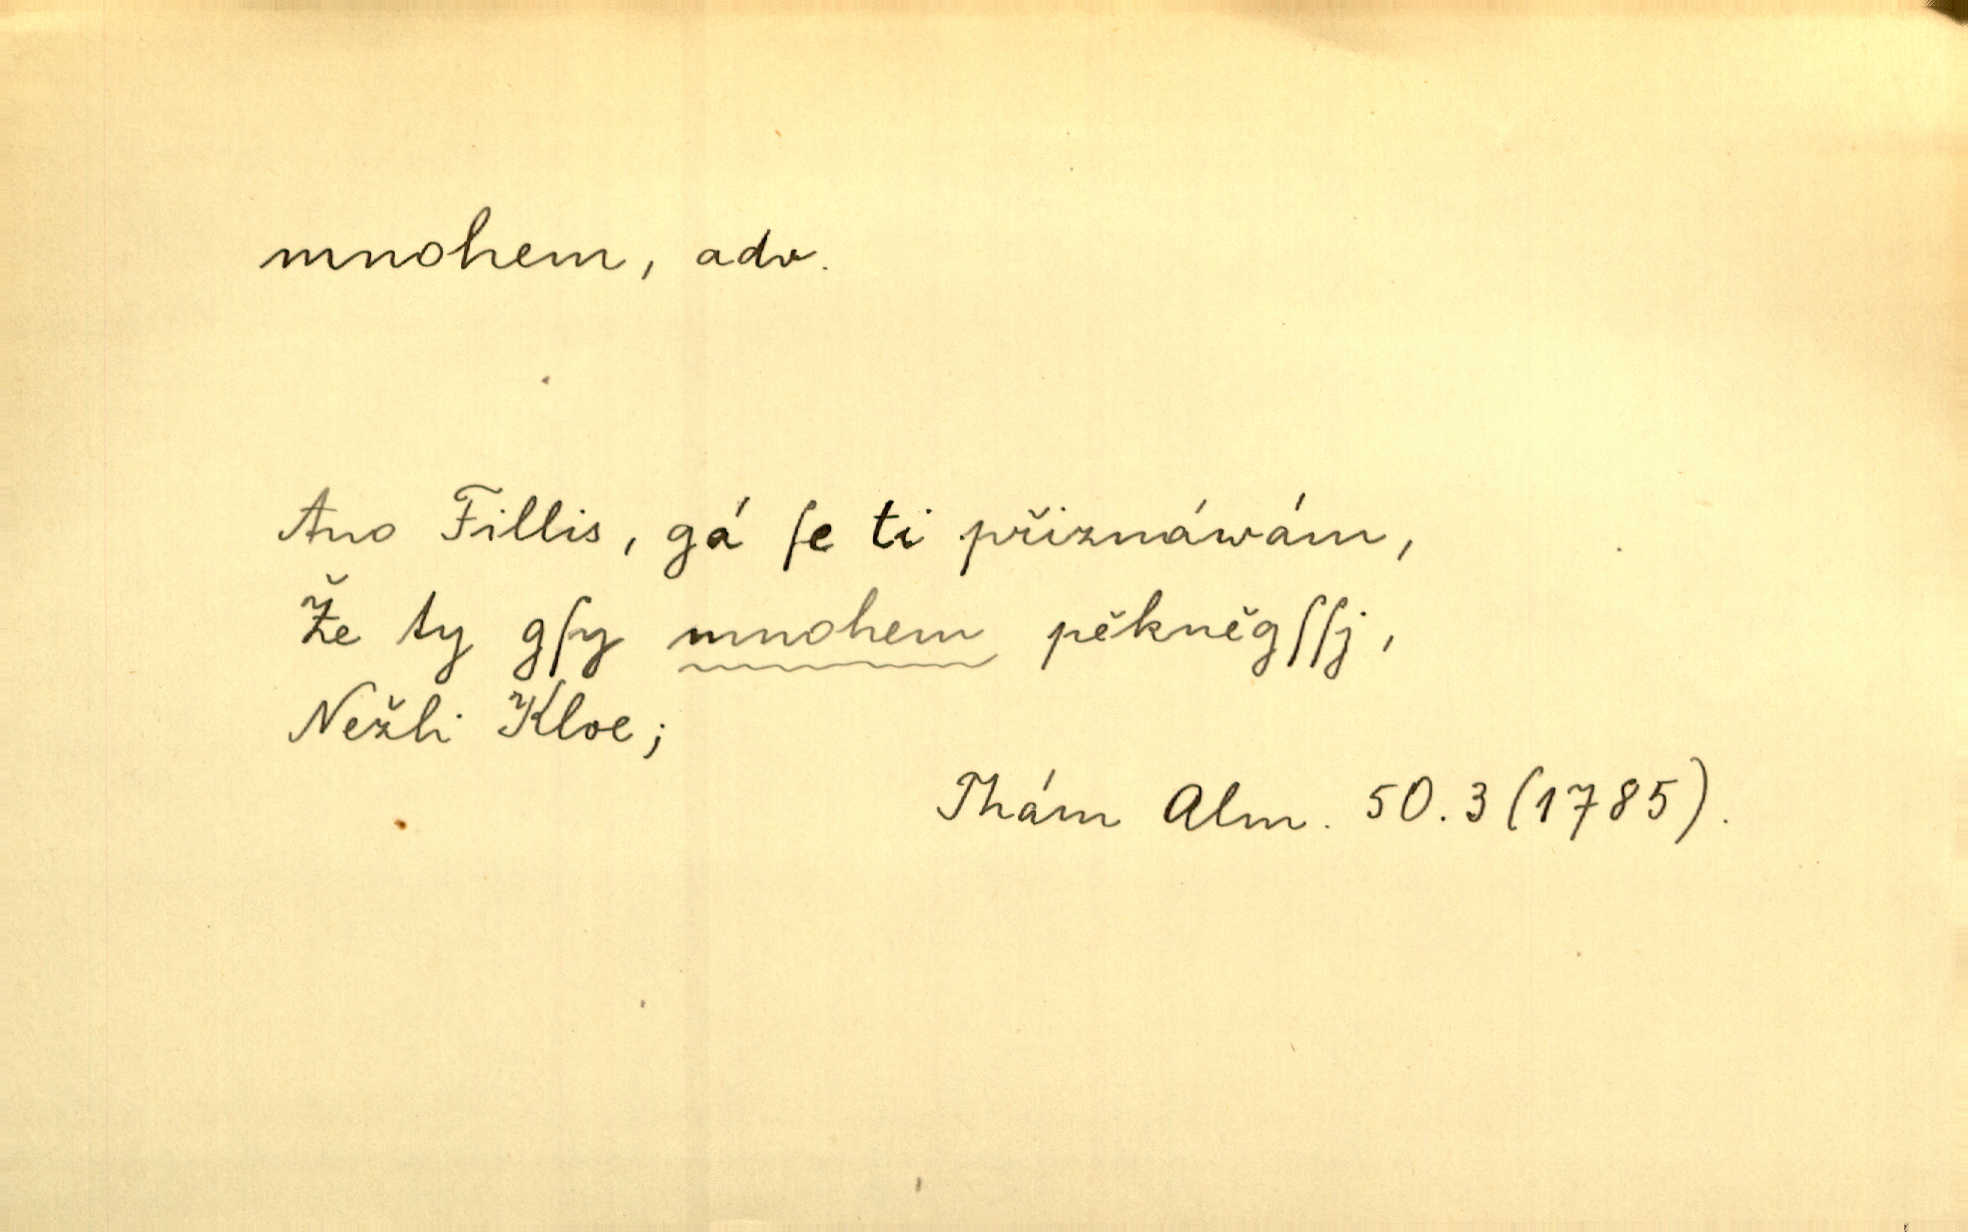 mnohem, adv.
Ano Fillis, gá ſe ti přiznáwám,
Že ty gſy mnohem pěkněgſſj,
Nežli Kloe;
Thám Alm. 50.3 (1785).